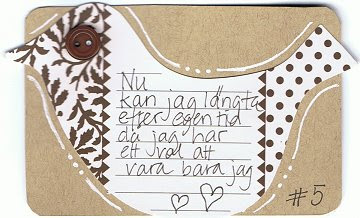 Nu
kan jag längta
efter egen tid
då jag har
ett val att
vara bara jag
#5